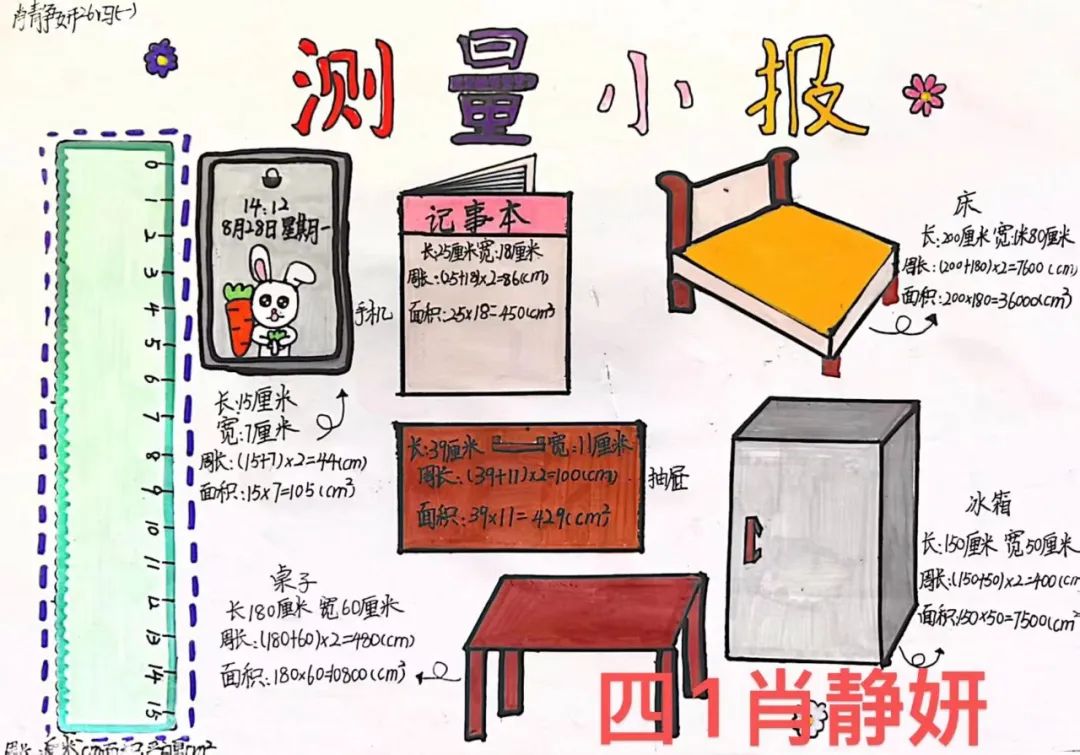 肖静妍26
测量小报
0
1
2
3
4
5
6
7
8
9
10
11
12
13
14
15
14:12
8月28日 星期一
手机
长:15厘米
宽:7厘米
周长:(15+7)×2=44(cm)
面积:15×7=105(cm²)
记事本
长:25厘米 宽:18厘米
周长:(25+18)×2=86(cm)
面积:25×18=450(cm²)
床
长:200厘米 宽:180厘米
周长:(200+180)×2=7600(cm)
面积:200×180=36000(cm²)
长:39厘米 宽:11厘米
周长:(39+11)×2=100(cm)
面积:39×11=429(cm²)
抽屉
冰箱
长:150厘米 宽50厘米
周长:(150+50)×2=400(cm)
面积:150×50=7500(cm²)
桌子
长180厘米 宽60厘米
周长:(180+60)×2=480(cm)
面积:180×60=10800(cm²)
四1肖静妍